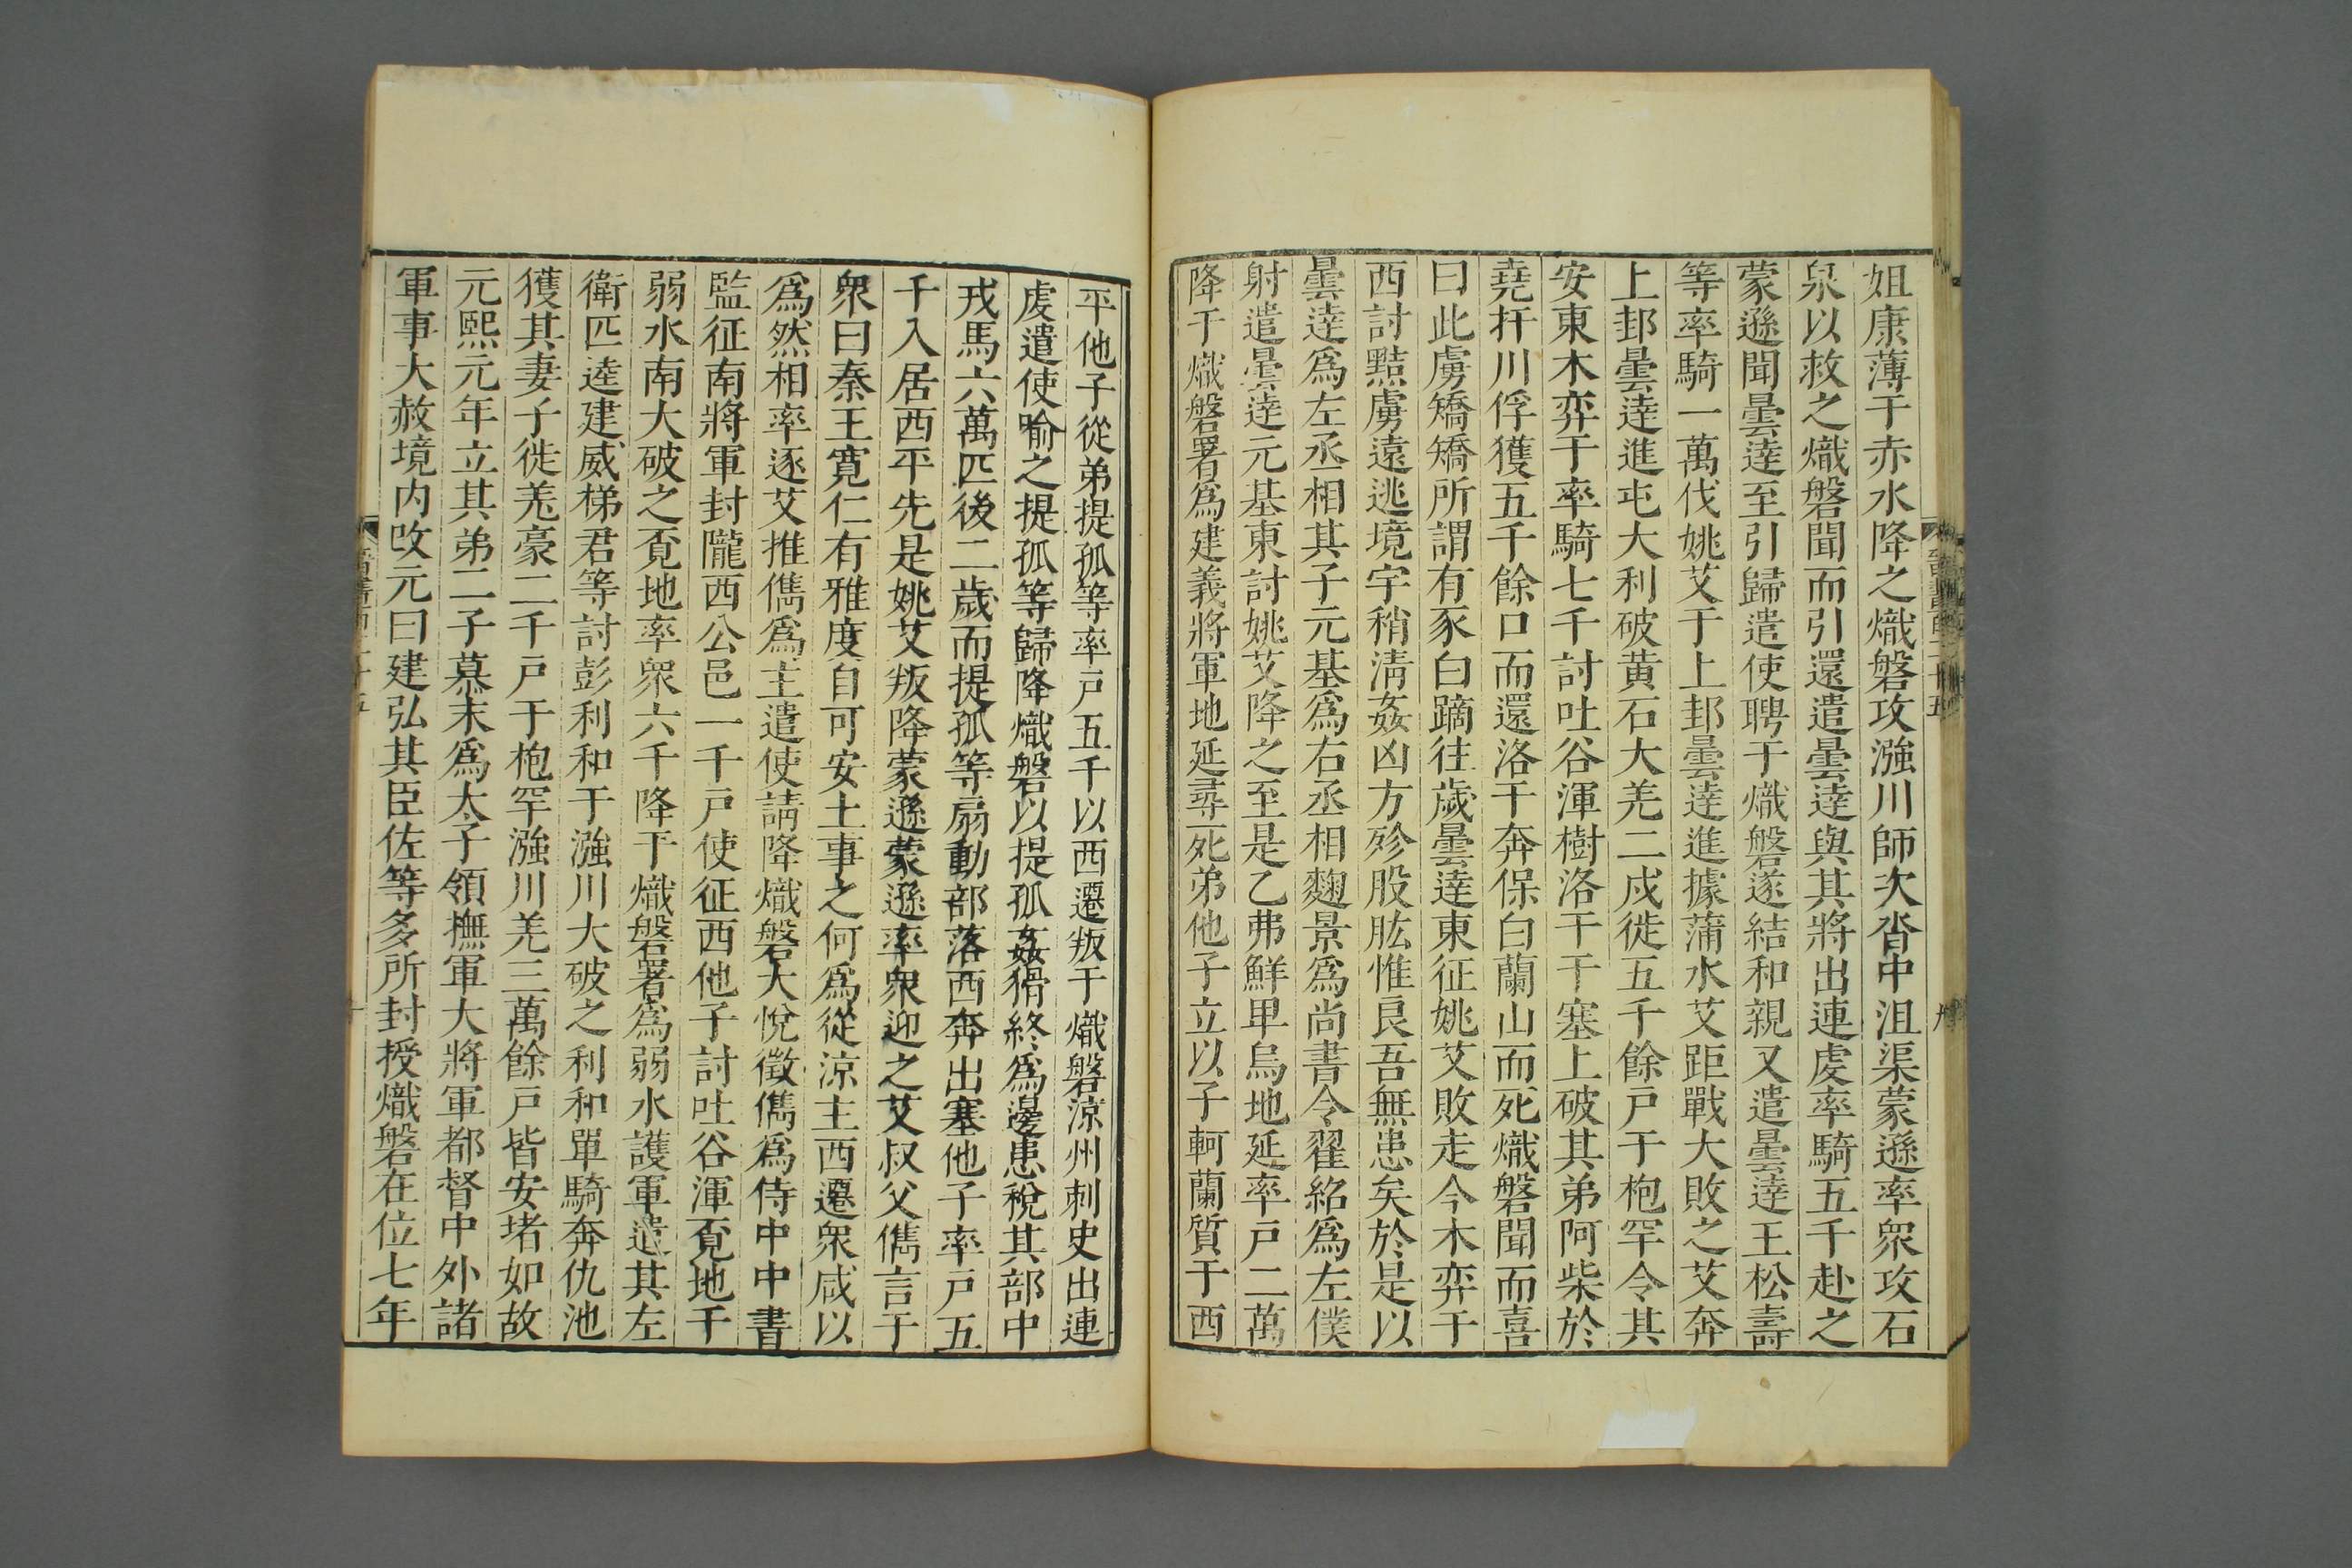 姐康薄于赤水降之熾磐攻漒川師次沓中沮渠蒙遜率衆攻石
泉以救之熾磐聞而引還遣曇逹與其將出連虔率騎五千赴之
蒙遜聞曇逹至引歸遣使聘于熾磐遂結和親又遣曇逹王松壽
等率騎一萬伐姚艾于上邽曇逹進據蒲水艾距戰大敗之艾奔
上邽曇逹進屯大利破黄石大羌二戍徙五千餘戸于枹罕令其
安東木弈于率騎七千討吐谷渾樹洛干于塞上破其弟阿柴於
堯扞川俘獲五千餘口而還洛干奔保白蘭山而死熾磐聞而喜
曰此虜矯矯所謂有豕白蹢往歲曇逹東征姚艾敗走今木弈于
西討黠虜遠逃境宇稍淸姦凶方殄股肱惟良吾無患矣於是以
曇逹爲左丞相其子元基爲右丞相麴景爲尚書令翟紹爲左僕
射遣曇逹元基東討姚艾降之至是乙弗鮮卑烏地延率戸二萬
降于熾磐署爲建義將軍地延尋死弟他子立以子軻蘭質于西
平他子從弟提孤等率戸五千以西遷叛于熾磐涼州刺史出連
虔遣使喻之提孤等歸降熾磐以提孤姦猾終爲邊患稅其部中
戎馬六萬匹後二歲而提孤等扇動部落西奔出塞他子率戸五
千入居西平先是姚艾叛降蒙遜蒙遜率衆迎之艾叔父儁言于
衆曰秦王寛仁有雅度自可安土事之何爲從涼主西遷衆咸以
爲然相率逐艾推儁爲主遣使請降熾磐大悅徵儁爲侍中中書
監征南將軍封隴西公邑一千戸使征西他子討吐谷渾覓地于
弱水南大破之覓地率衆六千降于熾磐署爲弱水護軍遣其左
衛匹逵建威梯君等討彭利和于漒川大破之利和單騎奔仇池
獲其妻子徙羌豪三千戸于枹罕漒川羌三萬餘戸皆安堵如故
元熙元年立其弟二子慕末爲太子領撫軍大將軍都督中外諸
軍事大赦境内改元曰建弘其臣佐等多所封授熾磐在位七年